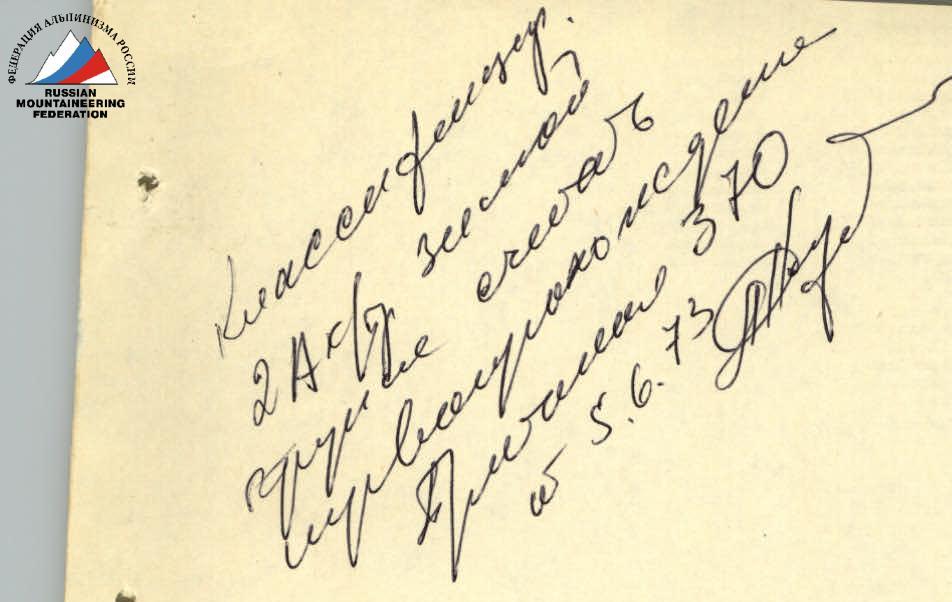 ФЕДЕРАЦИЯ АЛЬПИНИЗМА РОССИИ
RUSSIAN
MOUNTAINEERING
FEDERATION
Классифицир.
2А к/тр зимой
группе считать
первопрохождение
Протокол 370
от 5.6.73